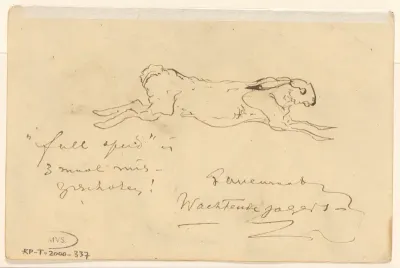 "full speed" is
3 maal mis-
geschoten!
Wachtende jagers
MVS
RP-T-2000-337